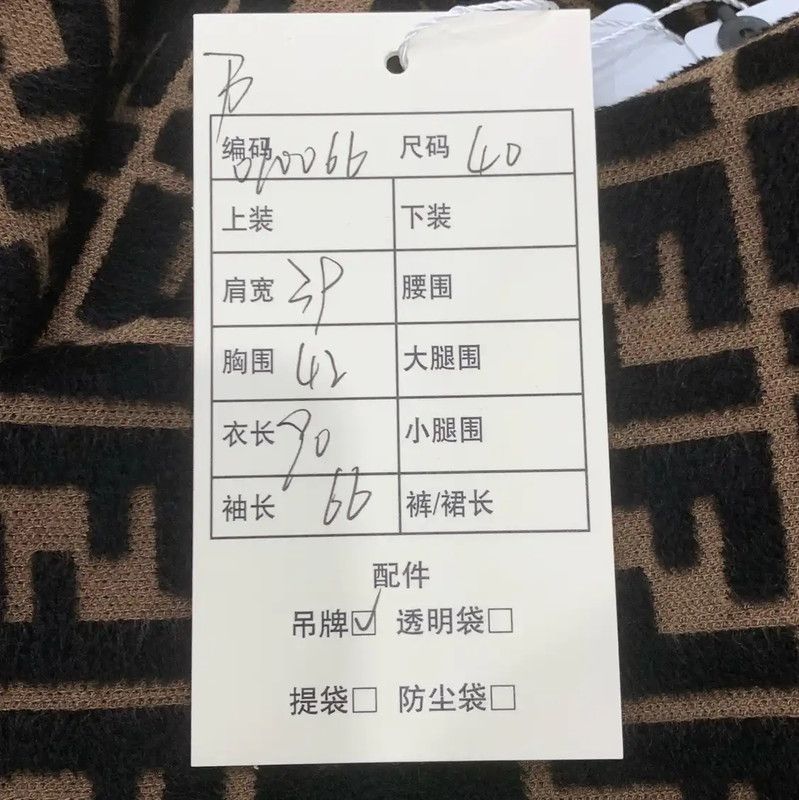 编码 010066 尺码 40
上装 下装
肩宽 39 腰围
胸围 42 大腿围
衣长 90 小腿围
袖长 66 裤/裙长
配件
吊牌☑ 透明袋□
提袋□ 防尘袋□